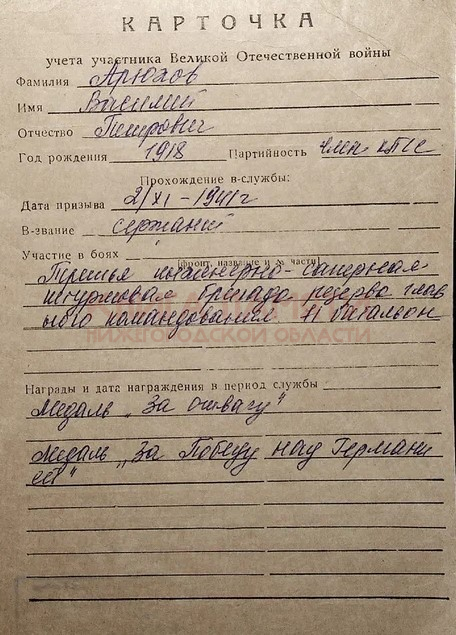 КАРТОЧКА
учета участника Великой Отечественной войны
Фамилия Арюхов
Имя Василий
Отчество Петрович
Год рождения 1918 Партийность член КПСС
Прохождение в-службы:
Дата призыва 2/XI-1941г
В-звание сержант
Участие в боях
(фронт, название и № части)
Третья инженерно-саперная
штурмовая бригада резерва глав
ного командования 11 батальон
НИЖЕГОРОДСКОЙ ОБЛАСТИ
Награды и дата награждения в период службы
Медаль „За отвагу"
Медаль „За Победу над Германи
ей"